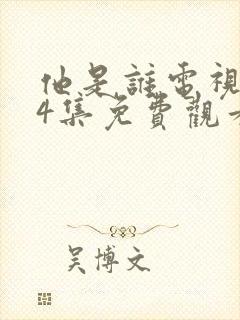 他是誰電視
4集免費觀看
吴博文